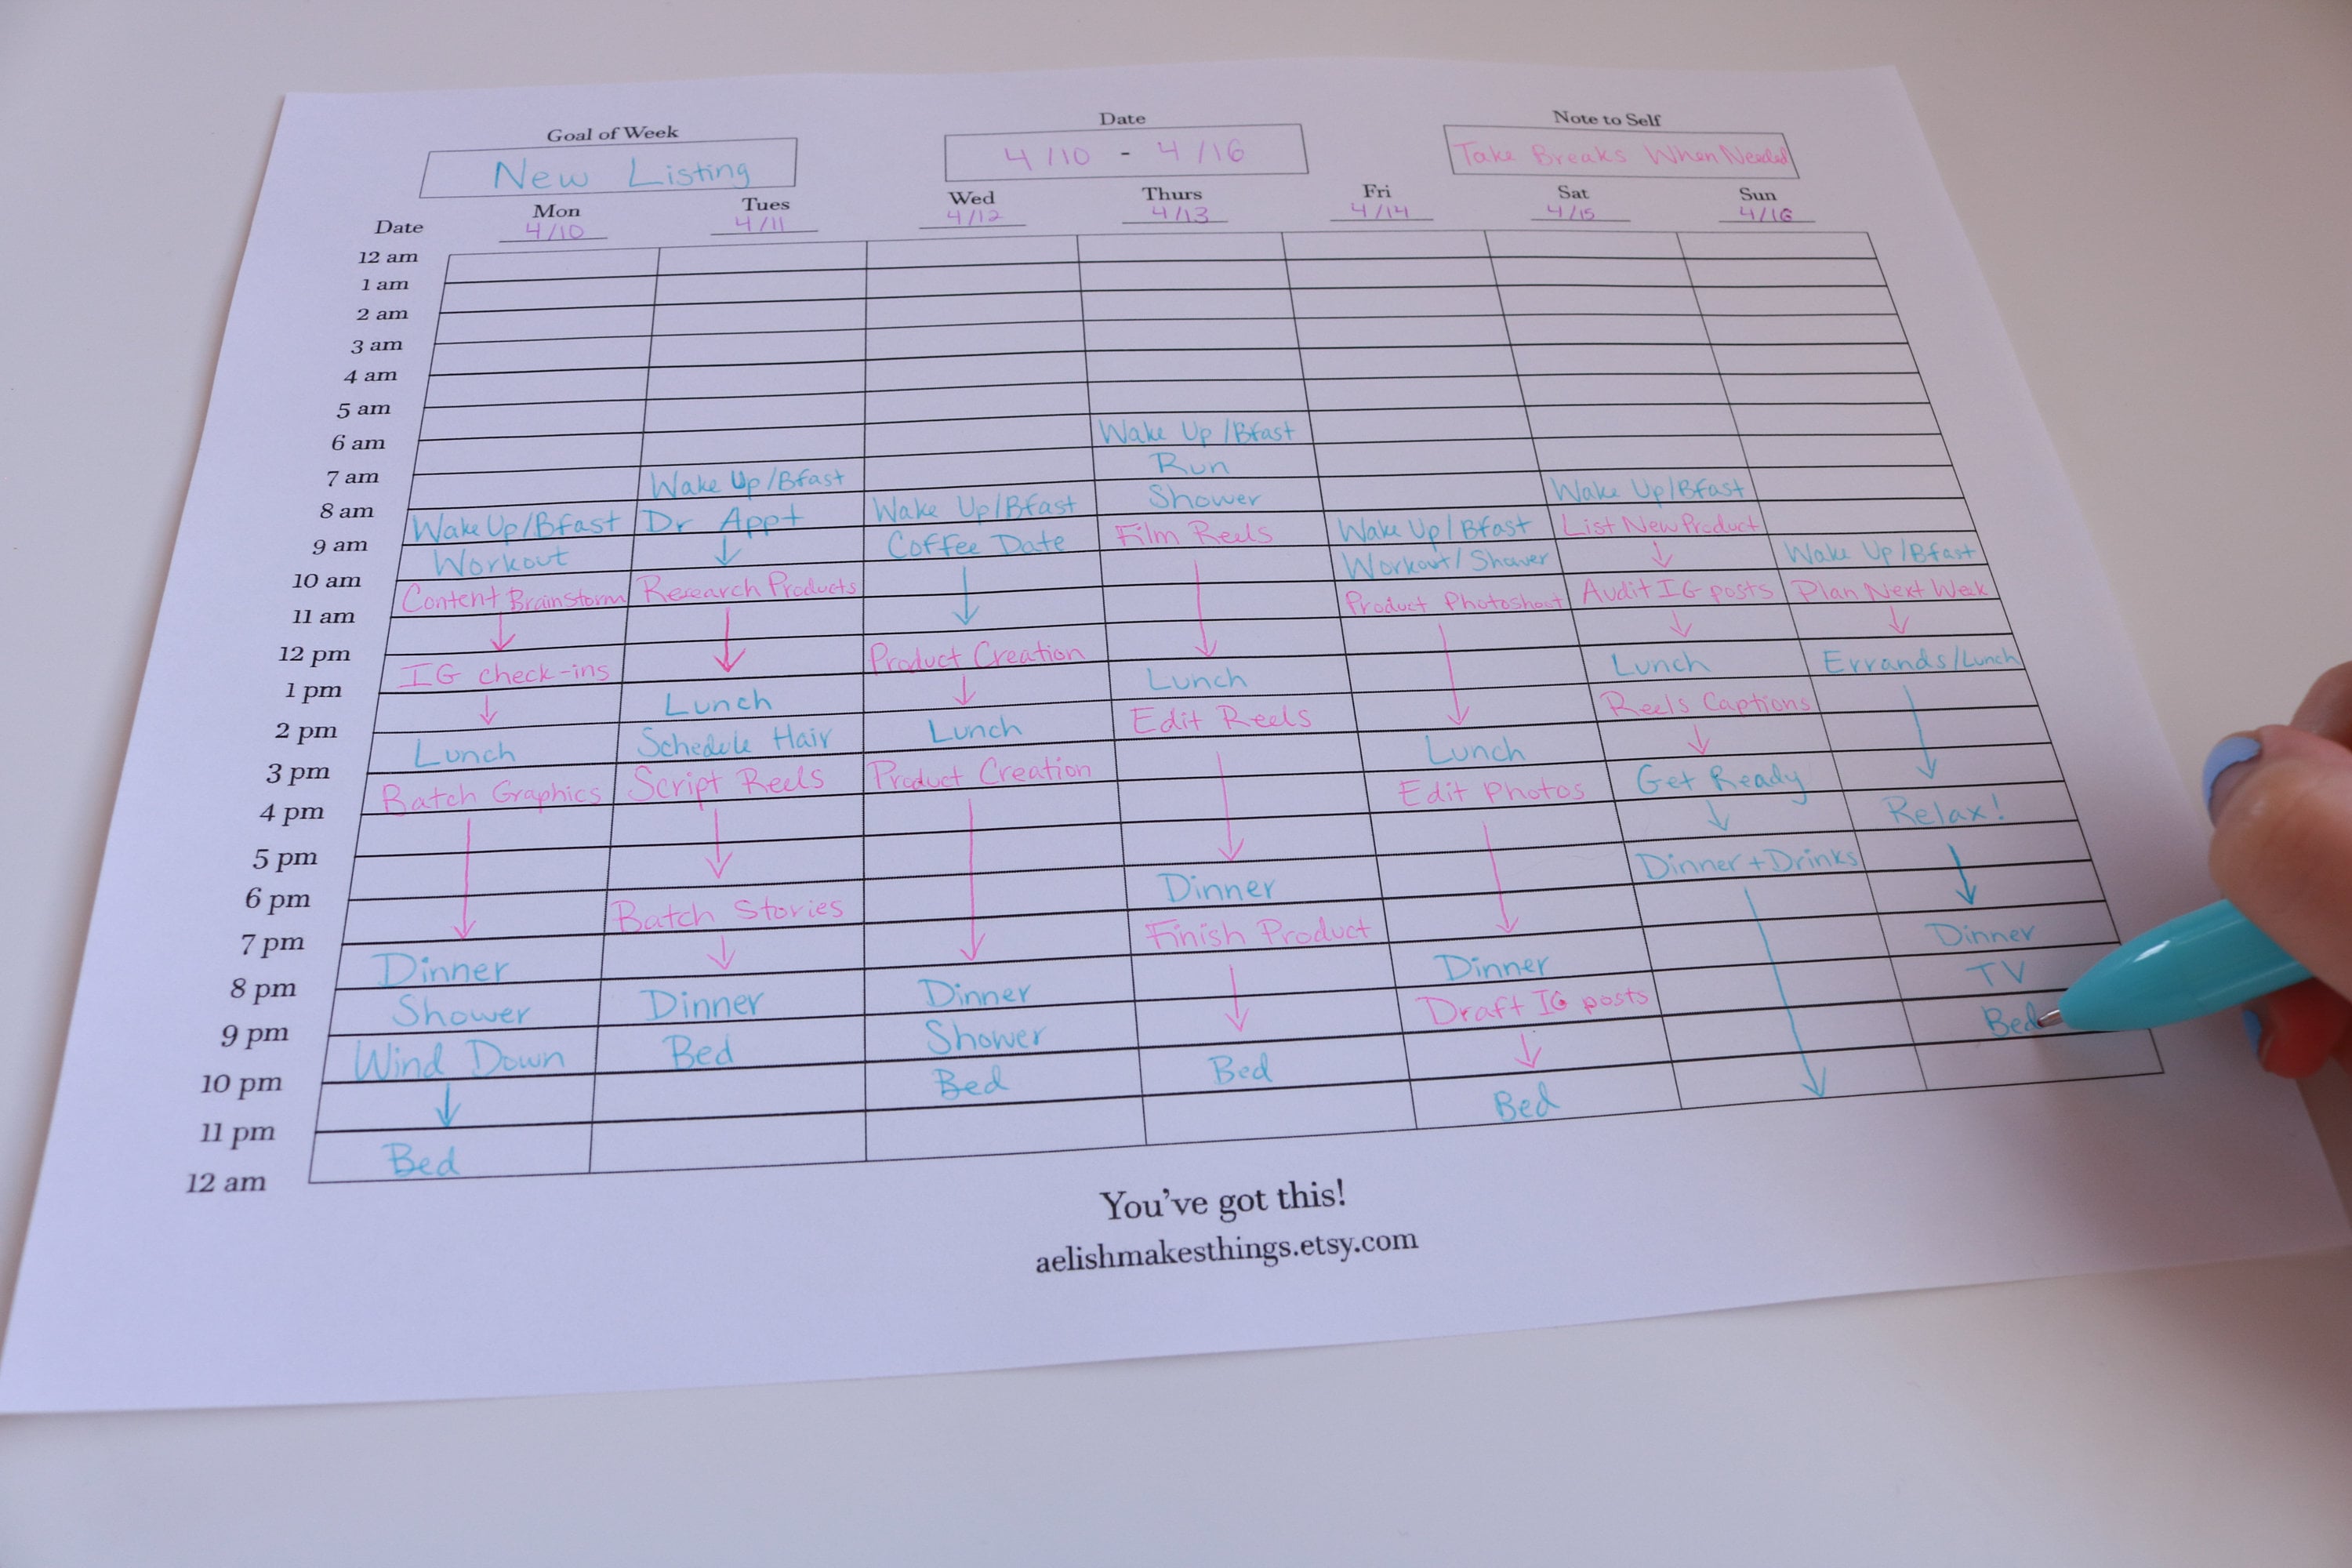 Goal of Week
New Listing
Date
4/10 - 4/16
Note to Self
Take Breaks When Needed
Date Mon Tues Wed Thurs Fri Sat Sun
4/10 4/11 4/12 4/13 4/14 4/15 4/16
12 am
1 am
2 am
3 am
4 am
5 am
6 am
7 am
8 am
9 am
10 am
11 am
12 pm
1 pm
2 pm
3 pm
4 pm
5 pm
6 pm
7 pm
8 pm
9 pm
10 pm
11 pm
12 am
Wake Up/Bfast
Workout
Content Brainstorm
IG check-ins
Lunch
Batch Graphics
Dinner
Shower
Wind Down
Bed
Wake Up/Bfast
Dr Appt
Research Products
Lunch
Schedule Hair
Script Reels
Batch Stories
Dinner
Bed
Wake Up/Bfast
Coffee Date
Product Creation
Lunch
Product Creation
Dinner
Shower
Bed
Wake Up/Bfast
Run
Shower
Film Reels
Lunch
Edit Reels
Dinner
Finish Product
Bed
Wake Up/Bfast
Workout/Shower
Product Photoshoot
Lunch
Edit Photos
Dinner
Draft IG posts
Bed
Wake Up/Bfast
List New Product
Audit IG posts
Lunch
Reels Captions
Get Ready
Dinner + Drinks
Wake Up/Bfast
Plan Next Week
Errands/Lunch
Relax!
Dinner
TV
Bed
You've got this!
aelishmakesthings.etsy.com